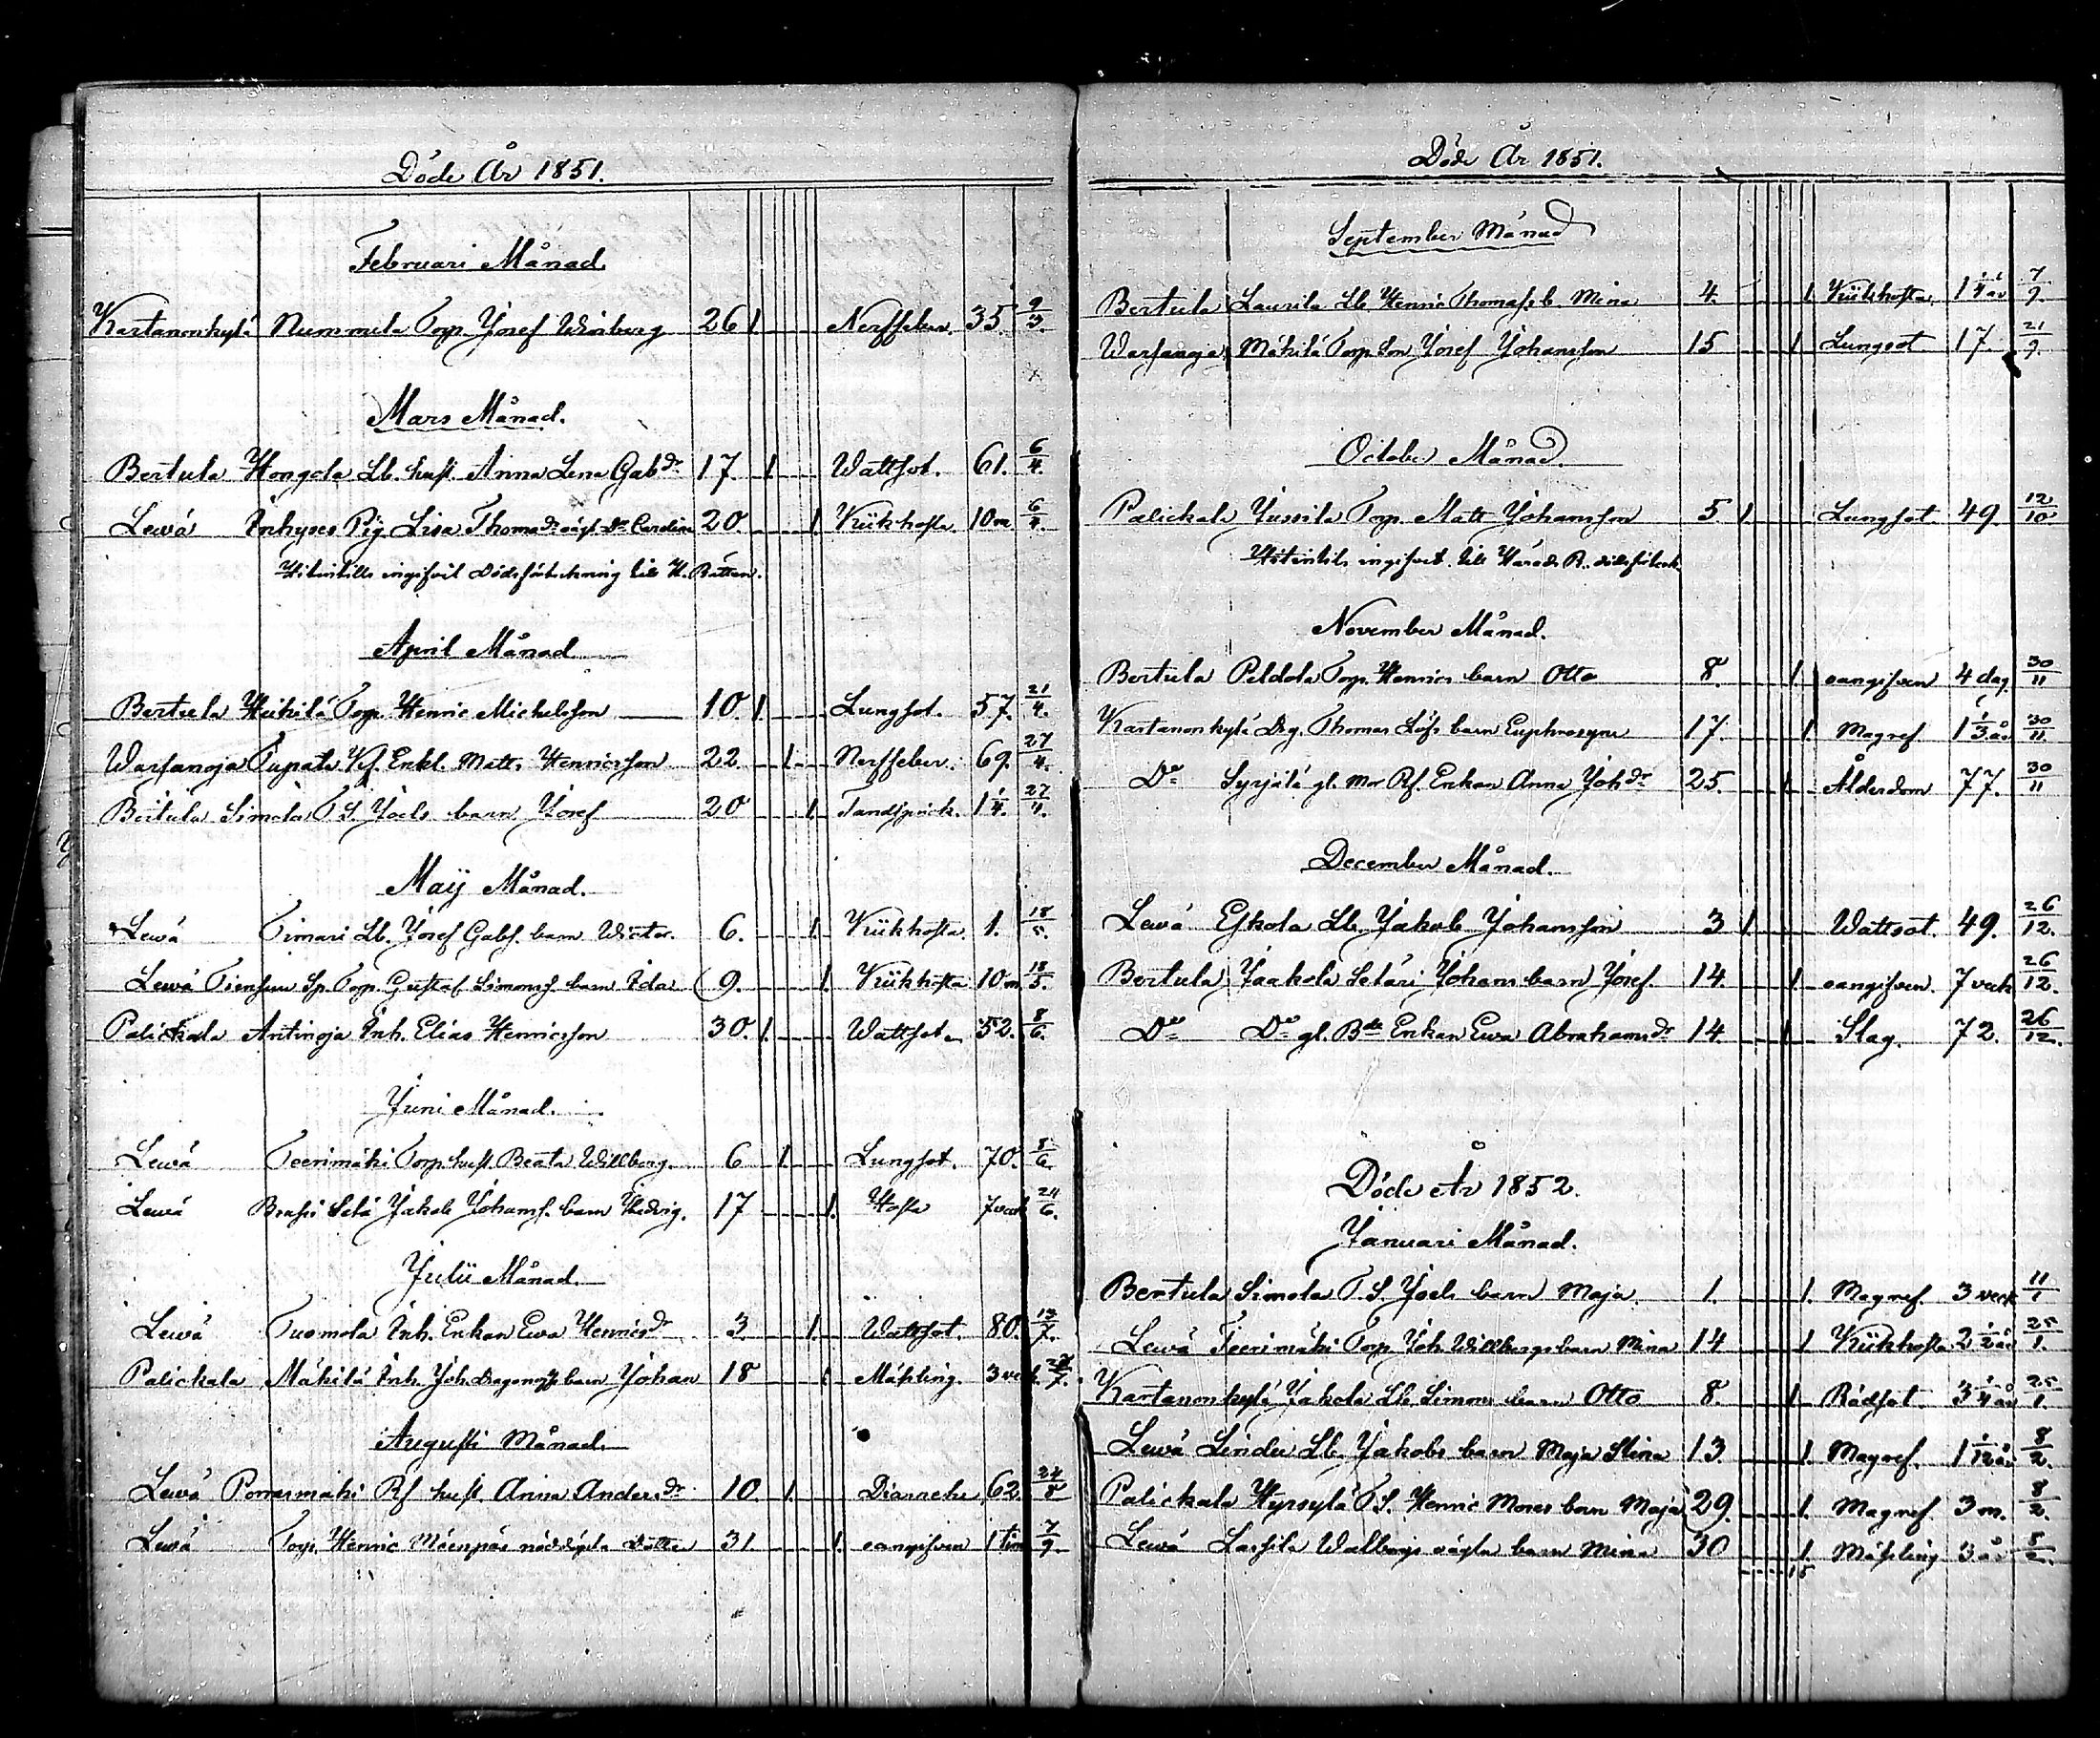 Döde År 1851.
Februari Månad.
Kartanonkylä Nummela Torp. Josef Winberg 26 1 Nerffeber. 35 9/3.
Mars Månad.
Bertula Hongola Lb. hust. Anna Lena Gabdr 17. 1 Wattsot. 61. 6/4.
Lewä Inhyses Pig Lisa Thomadr oägt. Dr Carolina 20. 1. Kikhosta 10 m 6/4.
Hitintills ingifvit Dödsförtekning till H. Rätten.
April Månad
Bertula Heikilä Torp. Henric Michelsson 10. 1. Lungsot. 57. 21/4.
Warsanoja Tupala Enkl. Matts Henricsson 22. 1. Nerffeber. 69. 27/4.
Bertula Simola T. S. Joels barn Josef 20 1. Tandsprick. 1 1/4. 27/4.
Maij Månad.
Lewä Timari Lb. Josef Gabs. barn Wictor. 6. 1. Kikhosta. 1. 18/5.
Lewä Tiensuu Sp. Torp. Gustaf Simons. barn Ida 9. 1. Kikhosta 10 m 18/5.
Palickala Antinoja Inh. Elias Henricsson 30. 1. Wattsot. 52. 8/6.
Juni Månad.
Lewä Teerimäki Torp. hust. Beata Willberg. 6 1. Lungsot. 70. 8/6.
Lewä Jakob Johans. barn Hedvig. 17 1. Hosta 7 veck 24/6.
Julii Månad.
Lewä Tuomola Inh. Enkan Ewa Henricsdr 3. 1. Wattsot. 80. 13/7.
Palickala Mäkilä Inh. Joh. barn Johan 18 1 Mässling. 3 veck
Augusti Månad.
Lewä Porrasmäki Rf hust. Anna Andersdr 10. 1. Diarrehe 62 24/8
Lewä Torp. Henric Mäenpääs nöddöpta Dotter 31 1. oangifven 1 tim 7/9.
Döde År 1851.
September Månad
Bertula Laurila Lb. Henric Thomass. b. Mina 4. 1. Kikhosta. 1 1/4 år 7/9.
Warsanoja Mäkilä Torp. Son Josef Johansson 15 1 Lungsot 17. 21/9.
October Månad.
Palickala Jussila Torp. Matt Johansson 5 1 Lungsot. 49. 12/10
Hitintils ingifvet. till Härads R. dödsförtek.
November Månad.
Bertula Peldola Torp. Henrics barn Otto 8. 1. oangifven 4 dag. 30/11
Kartanonkylä Drg. Thomas Löfs barn Euphrosyne 17. 1. Magref. 1 1/3 år 30/11.
Do Syrjälä gl. Mor Rf. Enkan Anna Johdr 25. 1 Ålderdom 77. 30/11
December Månad.
Lewä Eskola Lb. Jakob Johansson 3 1. Wattsot. 49. 26/12.
Bertula Jaakola Setäri Johans barn Josef. 14. 1 oangifven. 7 veck 26/12.
Do Do gl. Bde Enkan Ewa Abrahamsdr 14. 1 Slag. 72. 26/12.
Döde År 1852.
Januari Månad.
Bertula Simola T. S. Joels barn Maja. 1. 1. Magref. 3 veck 11/1
Lewä Teerimäki Torp. Joh. Willbergs barn Mina 14 1 Kikhosta 2 1/2 år 25/1.
Kartanonkylä Jakola Lb. Simons barn Otto 8. 1. Rödsot. 3 1/4 år 25/1.
Lewä Lindu Lb. Jakobs barn Maja Stina 13 1. Magref. 1 1/12 år 8/2.
Palickala Hyrsylä T. S. Henric Moses barn Maja 29. 1. Magref. 3 m. 8/2.
Lewä Lassila Walbergs oägta barn Mina 30 1. Mässling 3 år 8/2.
15